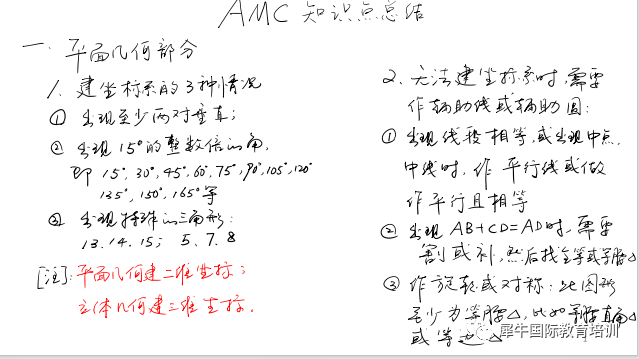 AMC 知识点总结
一、平面几何部分
1. 建坐标系的3种情况
① 出现至少两对垂直;
② 出现15°的整数倍的角,
即15°,30°,45°,60°,75°,90°,105°,120°
135°,150°,165°等
③ 出现特殊的三角形:
13.14.15; 5.7.8
[注]: 平面几何建二维坐标;
立体几何建三维坐标.
2. 无法建坐标系时,需要
作辅助线或辅助圆:
① 出现线段相等,或出现中点,
中线时,作平行线或做
作平行且相等
② 出现 AB+CD=AD时,需要
割或补,然后找全等或等腰△
③ 作旋转或对称:此图形
至少为等腰△,比如等腰直角△
或等边△
犀牛国际教育培训